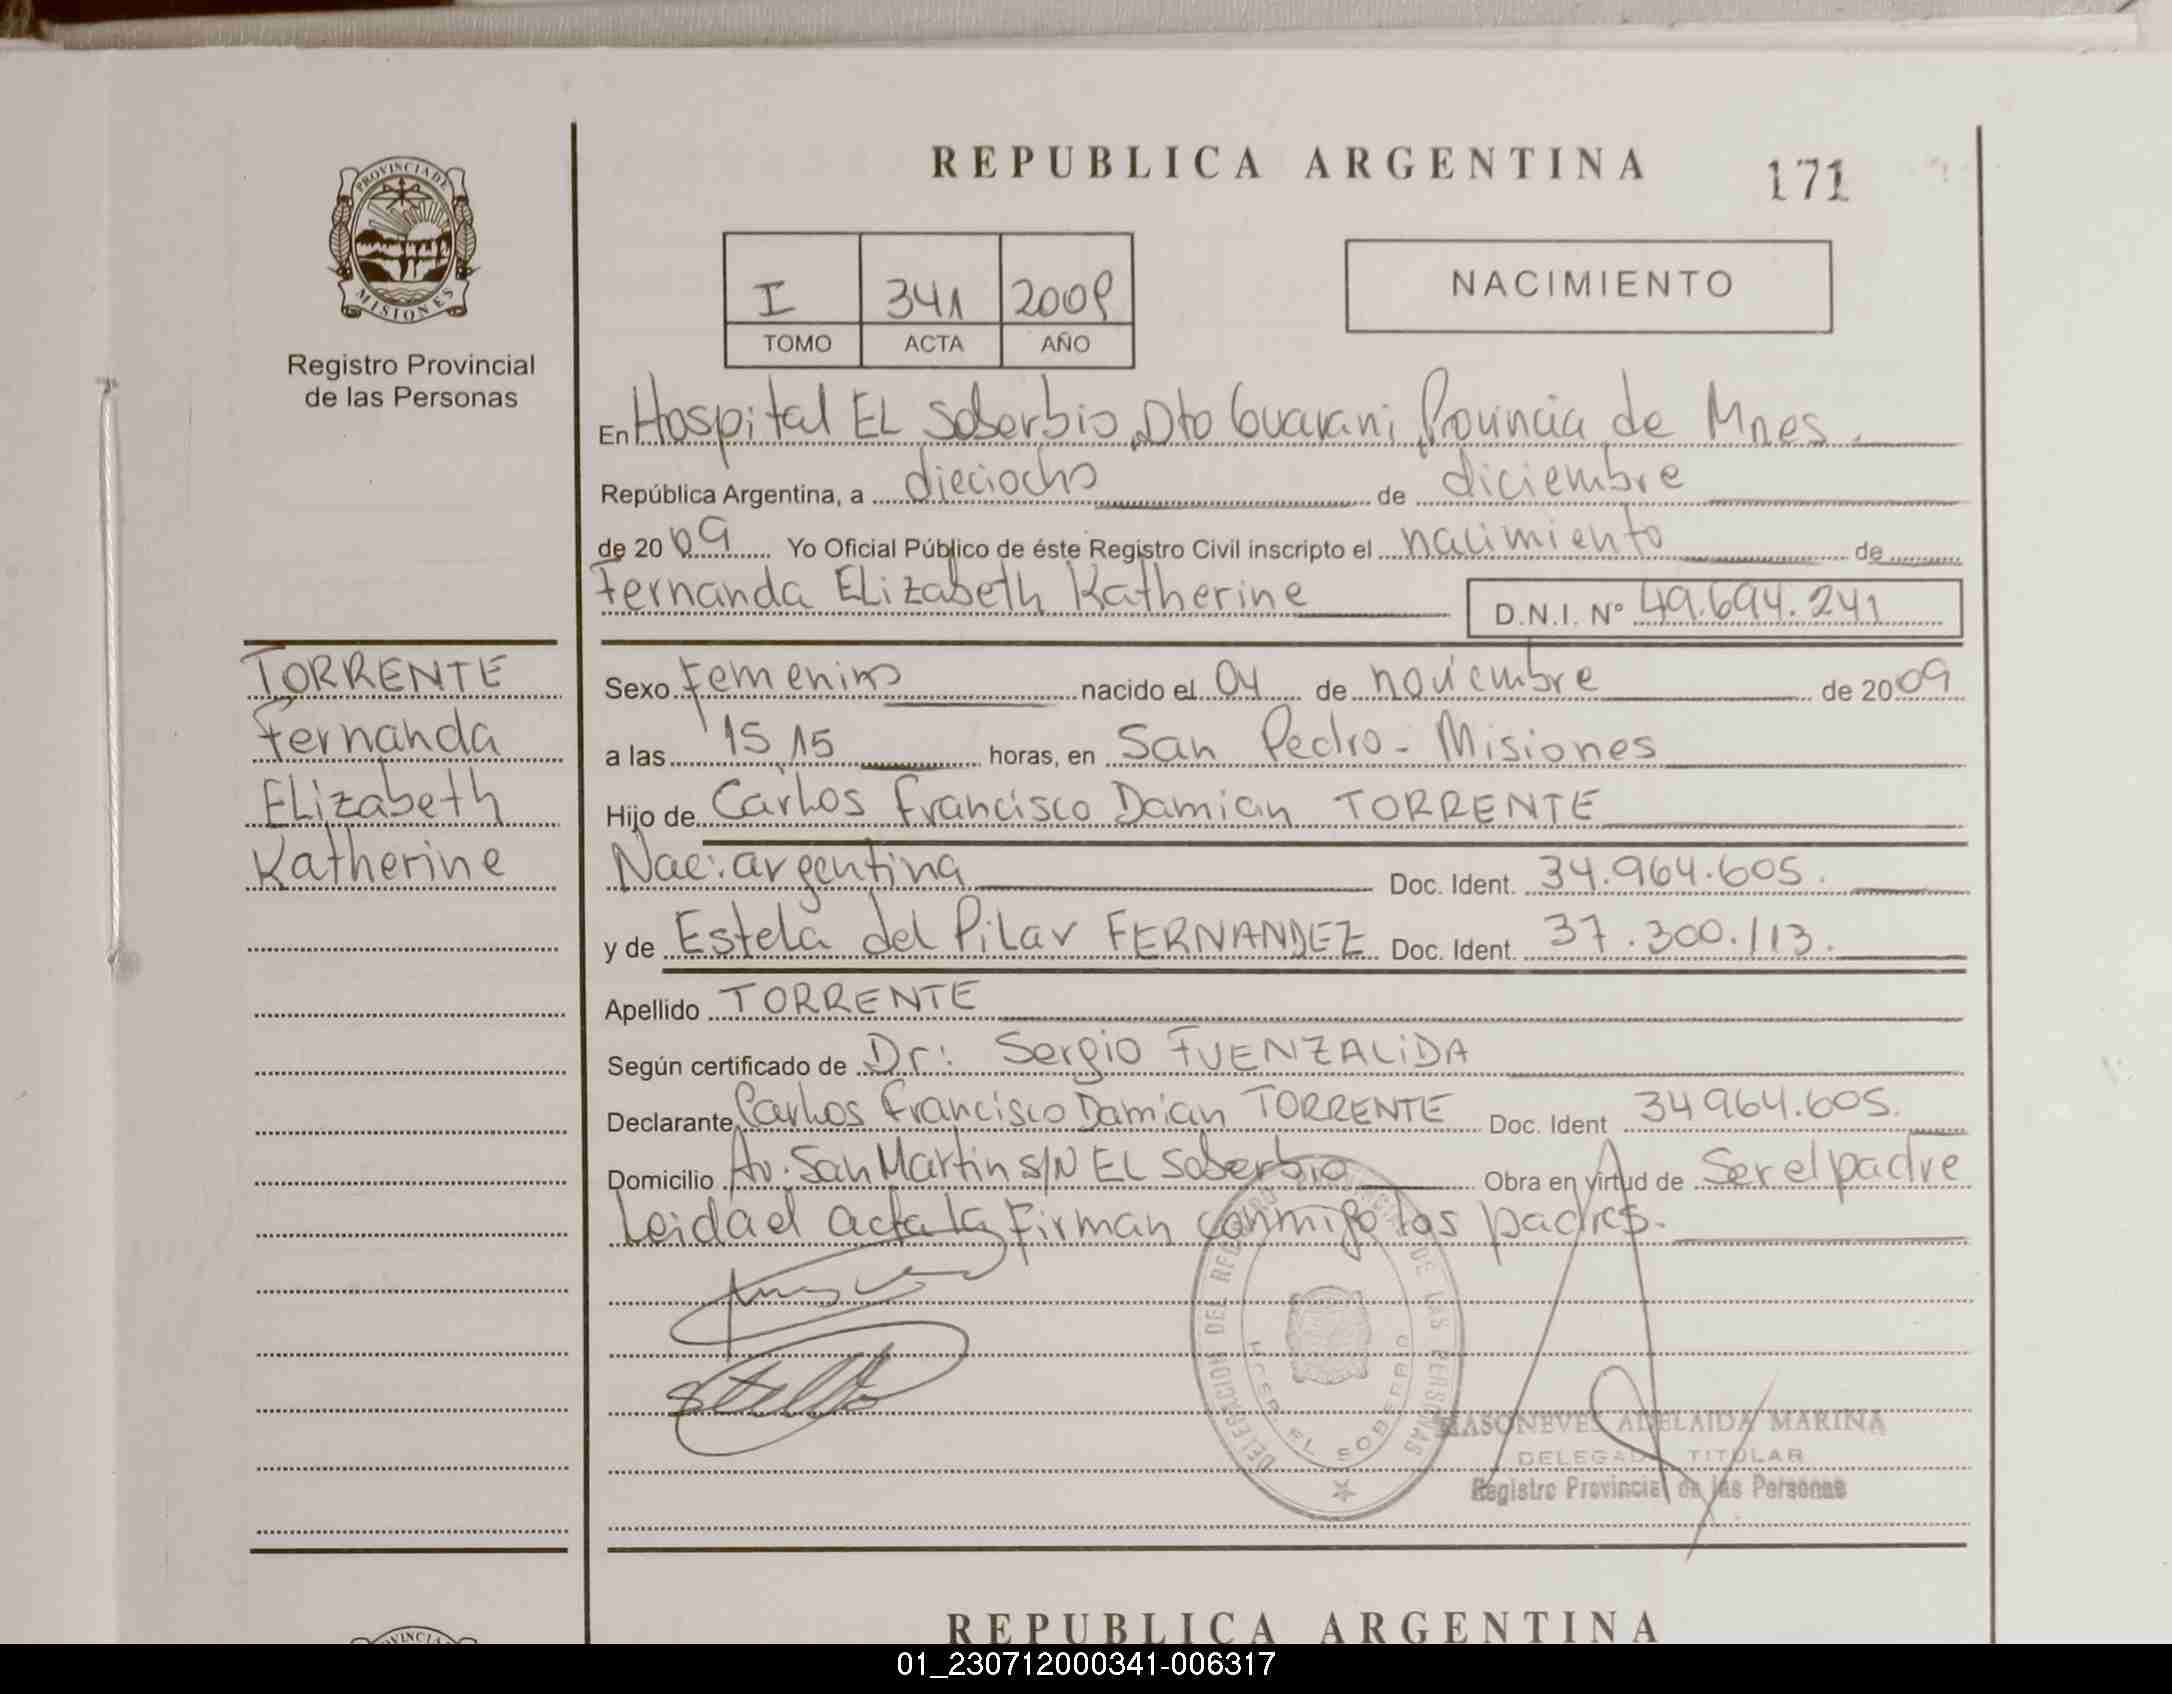 REPUBLICA ARGENTINA
171
PROVINCIA DE
MISIONES
Registro Provincial
de las Personas
I 341 2009
TOMO ACTA AÑO
NACIMIENTO
En Hospital EL Soberbio, Dto Guarani, Provincia de Mnes.
República Argentina, a dieciocho de diciembre
de 2009 Yo Oficial Público de éste Registro Civil inscripto el nacimiento de
Fernanda ELizabeth Katherine D.N.I. Nº 49.694.241
TORRENTE
Fernanda
ELizabeth
Katherine
Sexo Femenino nacido el 04 de noviembre de 2009
a las 15 15 horas, en San Pedro - Misiones
Hijo de Carlos Francisco Damian TORRENTE
Nac: argentina Doc. Ident. 34.964.605.
y de Estela del Pilar FERNANDEZ Doc. Ident. 37.300.113.
Apellido TORRENTE
Según certificado de Dr: Sergio FUENZALiDA
Declarante Carlos Francisco Damian TORRENTE Doc. Ident 34964.605.
Domicilio Av. San Martin s/N EL Soberbio Obra en virtud de Ser el padre
Leida el acta la Firman conmigo los padres.
DELEGACION DEL REGISTRO PROVINCIAL DE LAS PERSONAS
EL SOBERBIO
ADELAIDA MARINA
DELEGADA TITULAR
Registro Provincial de las Personas
REPUBLICA ARGENTINA
01_230712000341-006317